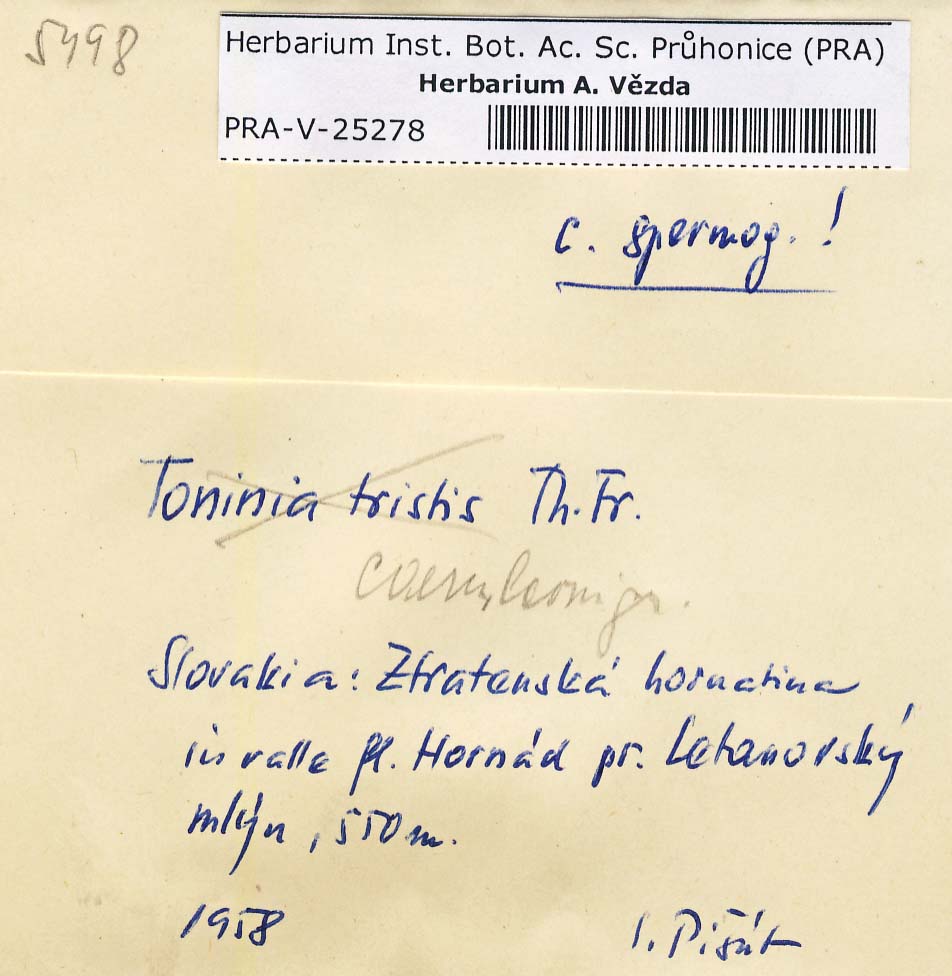 5498
Herbarium Inst. Bot. Ac. Sc. Průhonice (PRA)
Herbarium A. Vězda
PRA-V-25278
c. spermog. !
Toninia tristis Th. Fr.
coeruleonigr.
Slovakia: Ztratenská hornatina
in valle fl. Hornád pr. Letanovský
mlýn, 550 m.
1958
I. Pišút